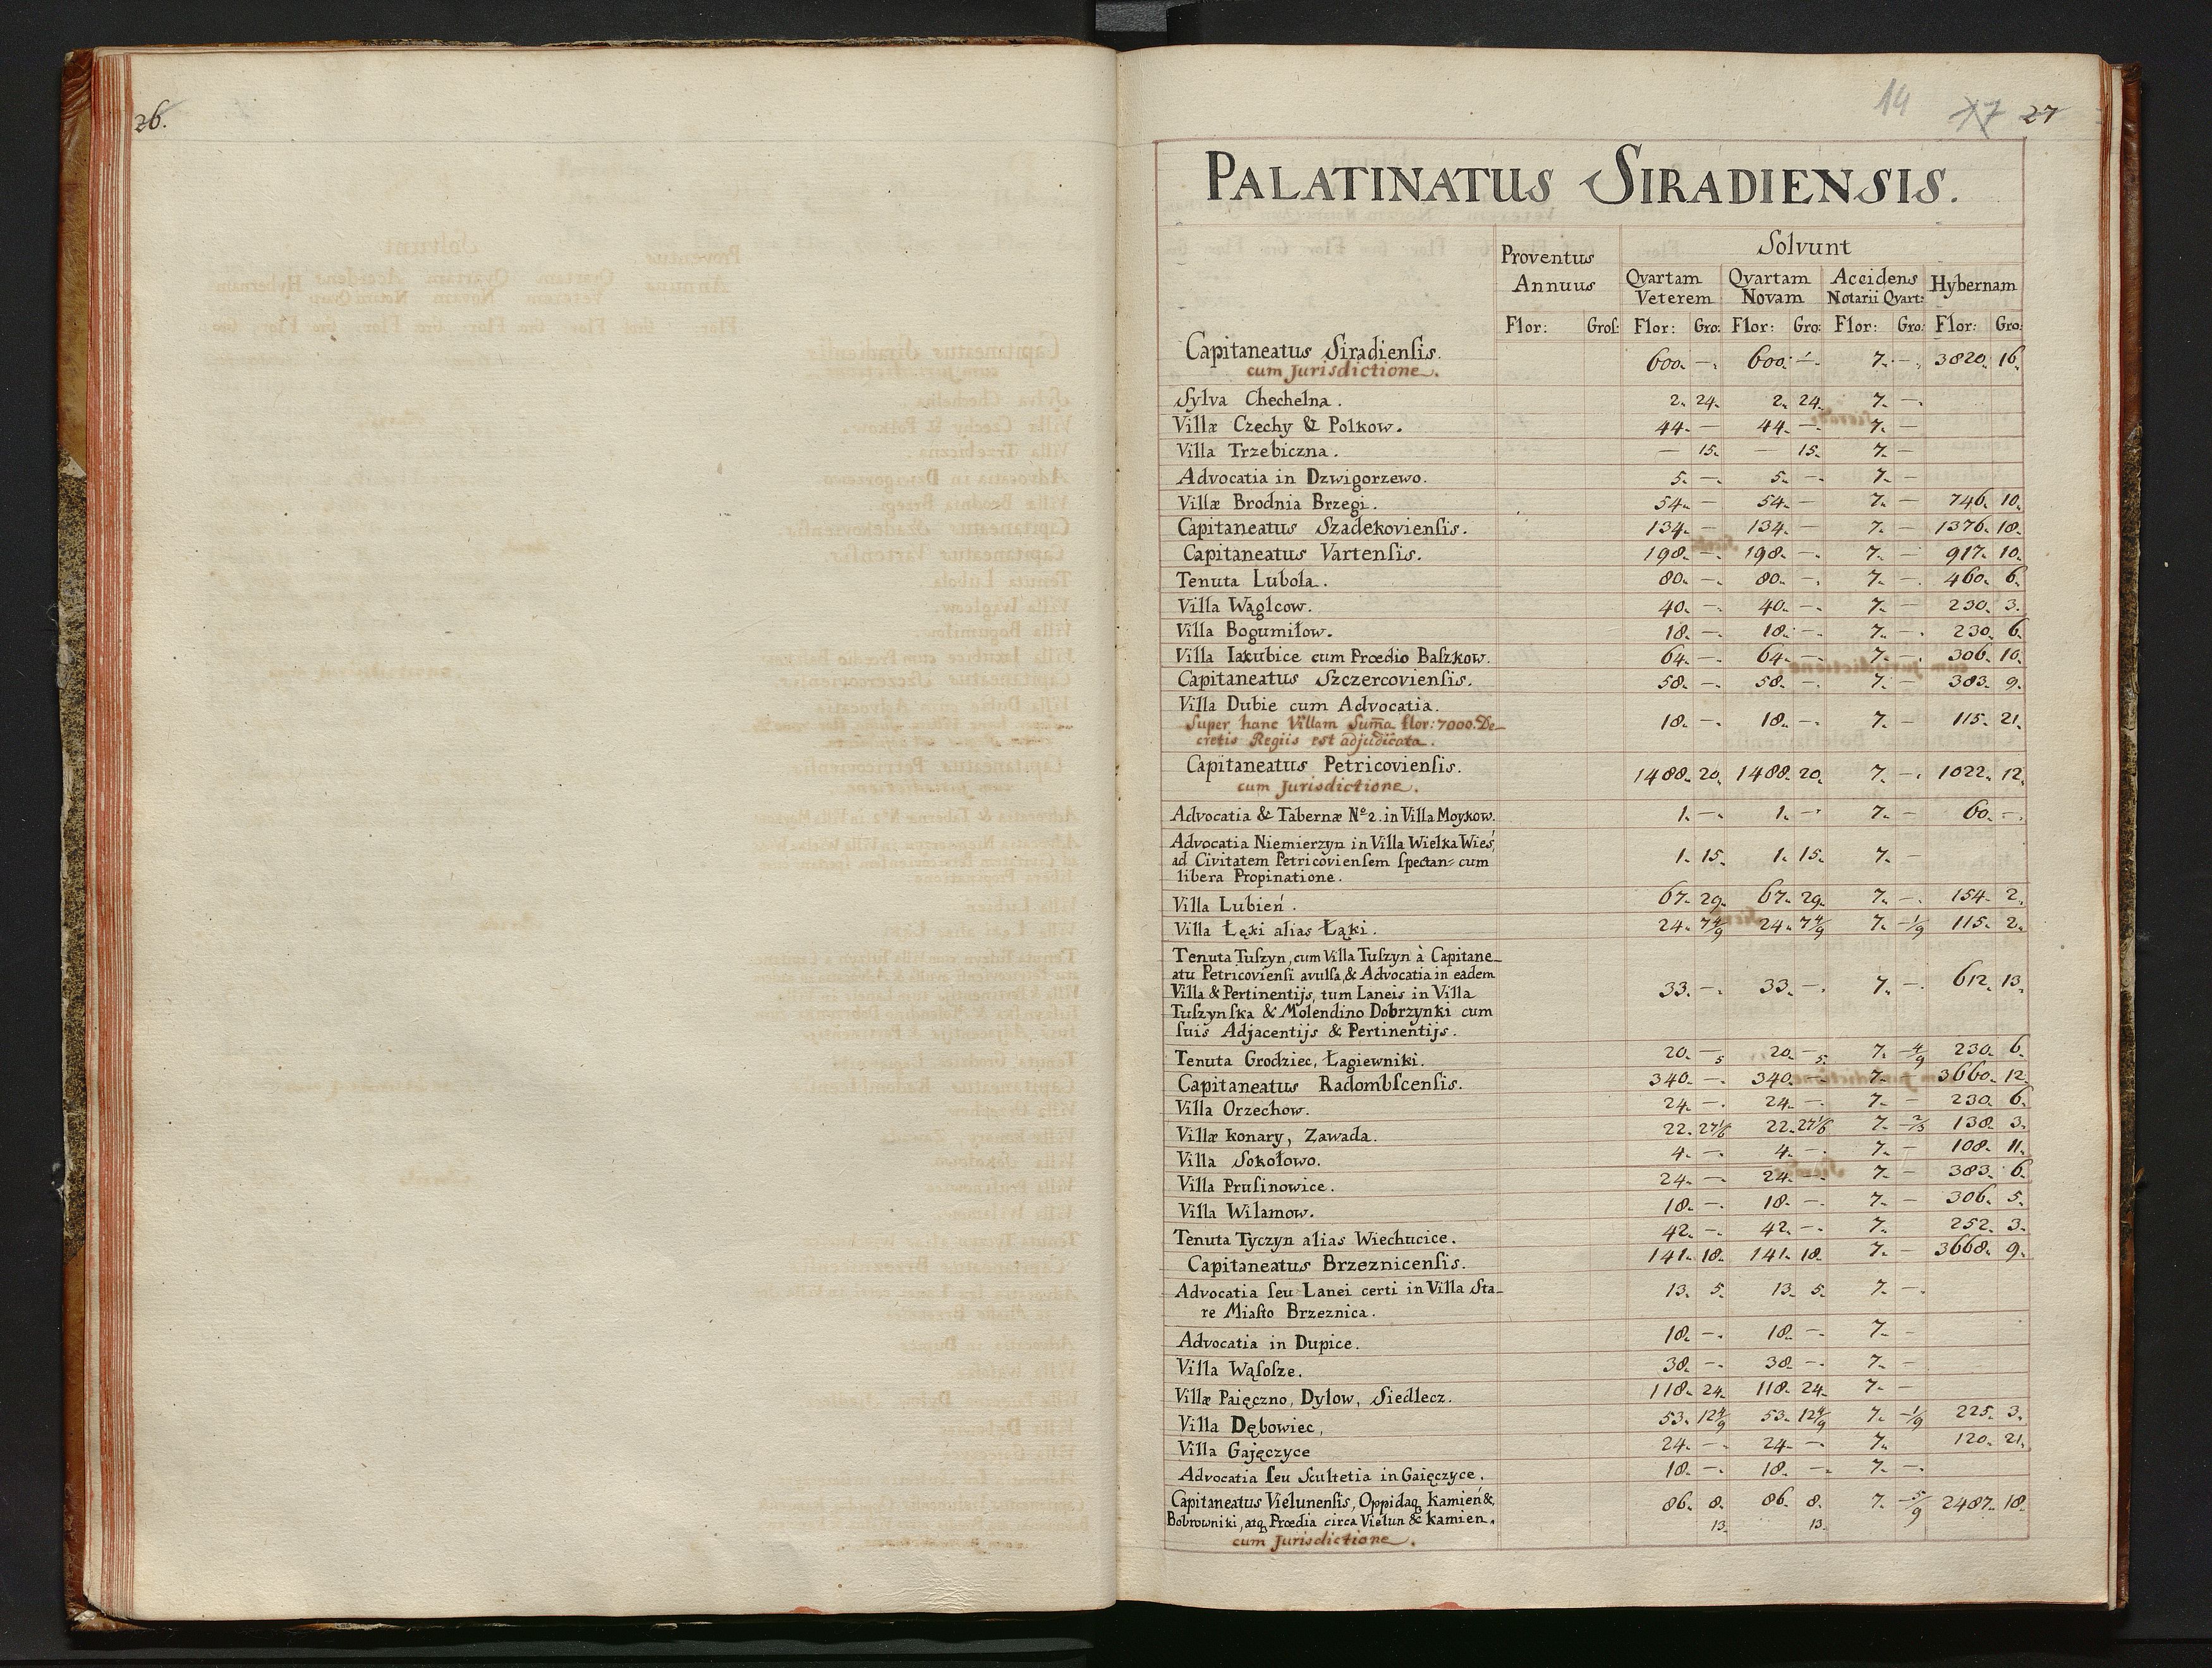 26.
14 27
PALATINATUS SIRADIENSIS.
Proventus Annuus
Solvunt
Qvartam Veterem
Qvartam Novam
Accidens Notarii Qvart:
Hybernam
Flor: Groſ: Flor: Gro: Flor: Gro: Flor: Gro: Flor: Gro:
Capitaneatus Siradienſis. 600. —. 600. —. 7. —. 3820. 16.
cum Jurisdictione.
Sylva Chechelna. 2. 24. 2. 24. 7. —.
Villæ Czechy & Polkow. 44. — 44. —. 7. —
Villa Trzebiczna. — 15. — 15. 7. —
Advocatia in Dzwigorzewo. 5. — 5. —. 7. —
Villæ Brodnia Brzegi. 54. — 54. — 7. — 746. 10.
Capitaneatus Szadekovienſis. 134. — 134. — 7. — 1376. 18.
Capitaneatus Vartenſis. 198. —. 198. —. 7. — 917. 10.
Tenuta Lubola. 80. —. 80. —. 7. —. 460. 6.
Villa Wąglcow. 40. —. 40. —. 7. — 230. 3.
Villa Bogumiłow. 18. —. 18. —. 7. —. 230. 6.
Villa Iakubice cum Prœdio Baſzkow. 64. —. 64. —. 7. —. 306. 10.
Capitaneatus Szczercovienſis. 58. —. 58. —. 7. — 383. 9.
Villa Dubie cum Advocatia. 18. —. 18. —. 7. — 115. 21.
Super hanc Villam Sum̄a flor: 7000. De-
cretis Regiis est adjudicata.
Capitaneatus Petricovienſis. 1488. 20. 1488. 20. 7. —. 1022. 12.
cum Jurisdictione.
Advocatia & Tabernæ Nº 2. in Villa Moykow. 1. —. 1. —. 7. — 60. —.
Advocatia Niemierzyn in Villa Wielka Wieś,
ad Civitatem Petricovienſem ſpectan= cum 1. 15. 1. 15. 7. —
libera Propinatione.
Villa Lubień. 67. 29. 67. 29. 7. —. 154. 2.
Villa Łęki alias Łąki. 24. 7 4/9 24. 7 4/9 7. — 1/9 115. 2.
Tenuta Tuſzyn, cum Villa Tuſzyn à Capitane-
atu Petricovienſi avulſa, & Advocatia in eadem
Villa & Pertinentijs, tum Laneis in Villa 33. —. 33. —. 7. —. 612. 13.
Tuſzynſka & Molendino Dobrzynki cum
ſuis Adjacentijs & Pertinentijs.
Tenuta Grodziec, Łagiewniki. 20. — 5 20. — 5. 7. — 4/9 230. 6.
Capitaneatus Radombſcenſis. 340. —. 340. — 7. — 3660. 12.
Villa Orzechow. 24. —. 24. —. 7. — 230. 6.
Villæ Konary, Zawada. 22. 27 1/6 22. 27 1/6 7. — 2/3 138. 3.
Villa Sokołowo. 4. —. 4. —. 7. — 108. 11.
Villa Pruſinowice. 24. —. 24. —. 7. — 383. 6.
Villa Wilamow. 18. —. 18. —. 7. — 306. 5.
Tenuta Tyczyn alias Wiechucice. 42. —. 42. —. 7. 252. 3.
Capitaneatus Brzeznicenſis. 141. 18. 141. 18. 7. — 3668. 9.
Advocatia ſeu Lanei certi in Villa Sta- 13. 5. 13. 5. 7. —.
re Miaſto Brzeznica.
Advocatia in Dupice. 18. —. 18. —. 7. —
Villa Wąſoſze. 38. —. 38. —. 7. —
Villæ Paięczno, Dylow, Siedlecz. 118. 24. 118. 24. 7. —
Villa Dębowiec, 53. 12 4/9 53. 12 4/9 7. — 1/9 225. 3.
Villa Gajęczyce 24. —. 24. —. 7. 120. 21.
Advocatia ſeu Scultetia in Gaięczyce. 18. —. 18. —. 7. —.
Capitaneatus Vielunenſis, Oppidaq, Kamień & 86. 8. 86. 8. 7. — 5/9 2487. 18.
Bobrowniki, atq, Prœdia circa Vielun & Kamien. 13. 13.
cum Jurisdictione.